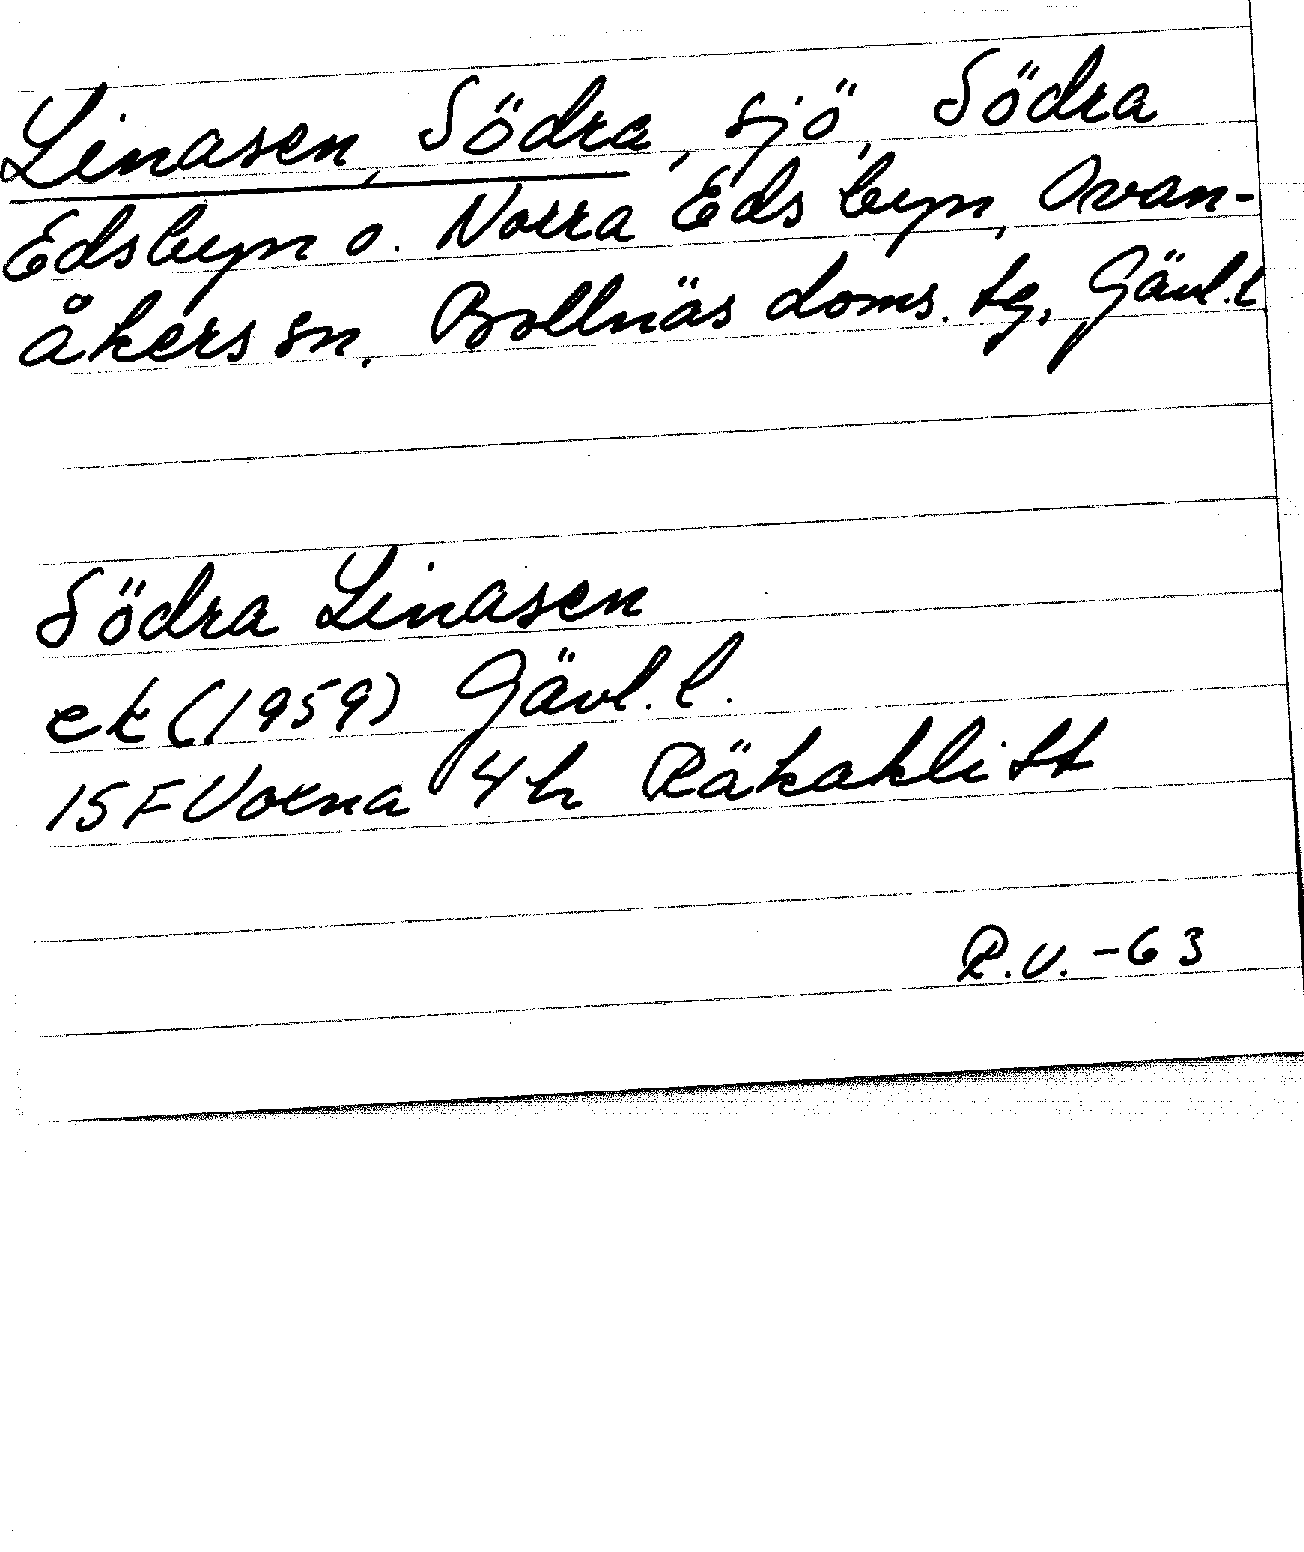 Linasen, Södra, sjö, Södra
Edsbyn o. Norra Edsbyn, Ovan-
åkers sn, Bollnäs doms. tg, Gävl. l
Södra Linasen
ek (1959) Gävl. l.
15 F Voxna 4 h Räkaklitt
R.V. -63